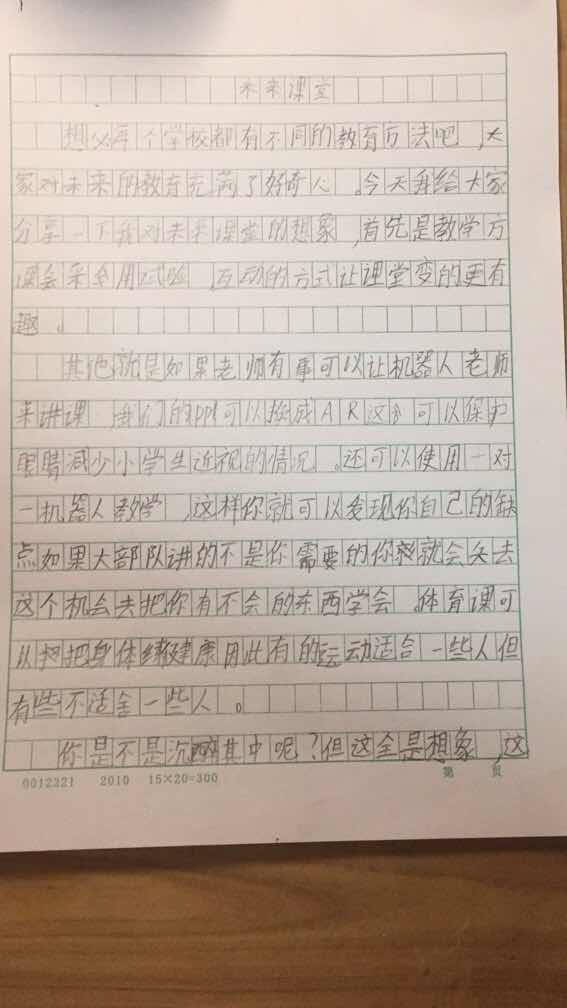 未来课堂
想必每个学校都有不同的教育方法吧,大
家对未来的教育充满了好奇心。今天我给大家
分享一下我对未来课堂的想象,首先是教学方
课会采用试验、互动的方式让课堂变的更有
趣。
其他就是如果老师有事可以让机器人老师
来讲课,我们的ppt可以换成AR这可以保护
眼睛减少小学生近视的情况。还可以使用一对
一机器人教学,这样你就可以发现你自己的缺
点如果大部队讲的不是你需要的你就会失去
这个机会去把你有不会的东西学会。体育课可
以把身体健康因此有的运动适合一些人但
有些不适合一些人。
你是不是沉醉其中呢?但这全是想象,这
0012321 2010 15×20=300 第 页